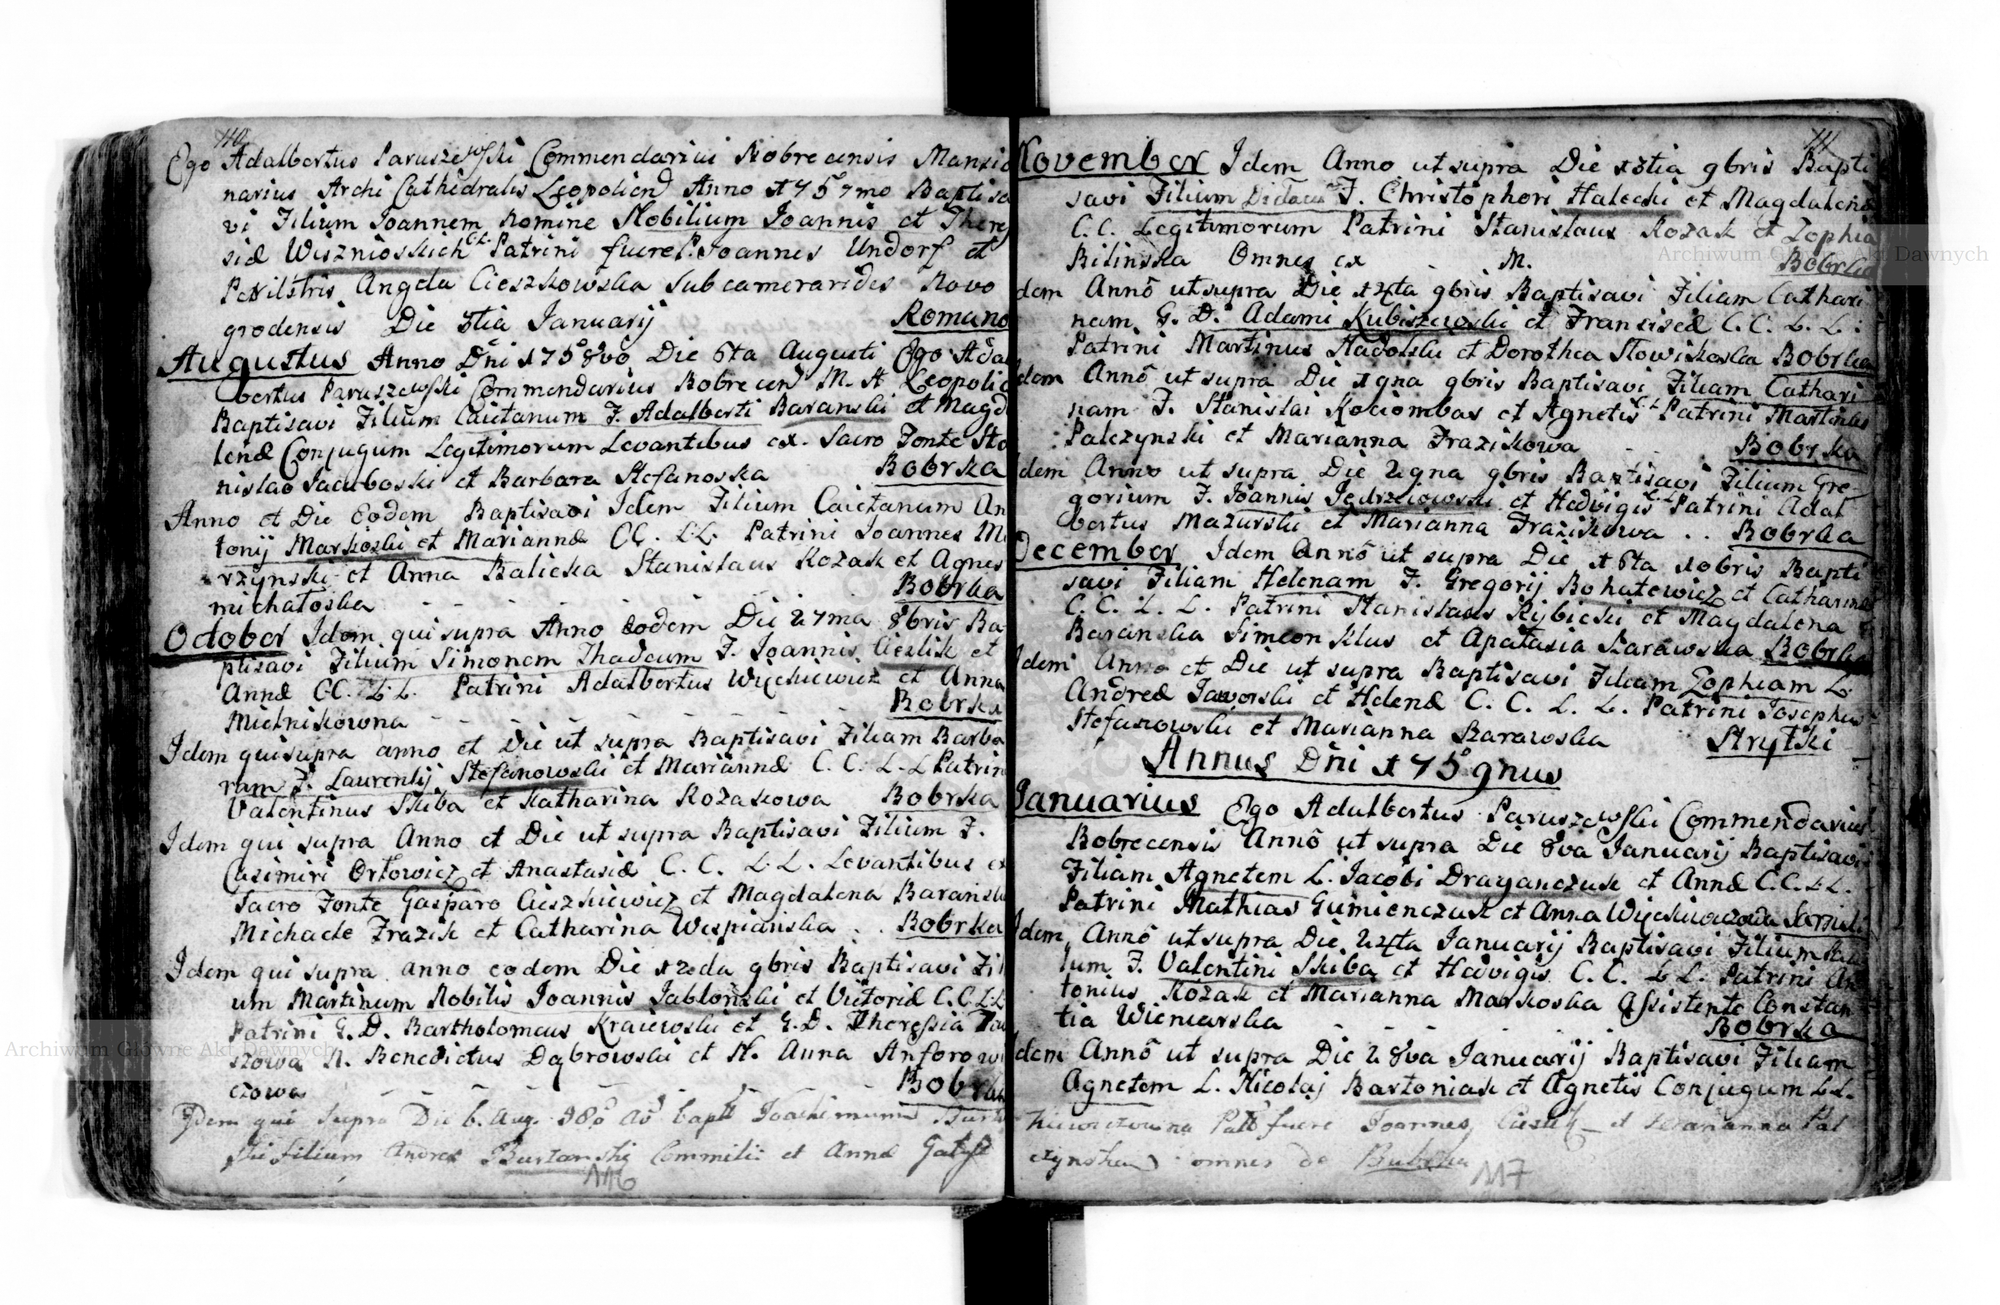 110
Ego Adalbertus Paruszewski Commendarius Bobrecensis Mansio
narius Archi Cathedralis Leopolien Anno 1757mo Baptisa
vi Filium Joannem Nomine Nobilium Joannis et There
siæ Wisznioskich C.L. Patrini fuere P. Joannes Undorf et
Perillstris Angela Cieszkowska Subcamerarides Novo
grodensis Die 3tia Januarij Romano
Augustus Anno Dñi 1758vo Die 6ta Augusti Ego Adal
bertus Paruszewski Commendarius Bobrecen M. A Leopolie
Baptisavi Filium Caietanum F. Adalberti Baranski et Magda
lenæ Conjugum Legitimorum Levantibus ex Sacro Fonte Sta
nislao Jacuboski et Barbara Stefanoska Bobrka
Anno et Die Eodem Baptisavi Idem Filium Caietanum An
tonij Markoski et Mariannæ CC. LL. Patrini Joannes M
rzynski et Anna Balicka Stanislaus Kozak et Agnes
michałoska Bobrka
October Idem qui supra Anno eodem Die 27ma 8bris Ba
ptisavi Filium Simonem Thadeum F. Joannis Cieslik et
Annæ CC. L.L. Patrini Adalbertus Wyckiewicz et Anna
Mielnikowna Bobrka
Idem qui supra anno et Die ut supra Baptisavi Filiam Barba
ram F. Laurentij Stefanowski et Mariannæ C. C. L. L Patrin
Valentinus Skiba et Katharina Kozakowa Bobrka
Idem qui supra Anno et Die ut supra Baptisavi Filium F.
Casimiri Orłowicz et Anastasiæ C. C. L L. Levantibus ex
Sacro Fonte Gasparo Cieszkiewicz et Magdalena Baransk
Michaele Frazik et Catharina Wespianska . . Bobrka
Idem qui supra anno eodem Die 12da 9bris Baptisavi Fil
um Martinum Nobilis Joannis Jabłonski et Victoriæ C. C L.L
Patrini G. D. Bartholomeus Kraiewski et G. D. Theressia
szowa N. Benedictus Dąbrowski et N. Anna Anforowi
czowa Bobrka
Idem qui supra Die 6. Aug. Bapt Joachimum
ski filium Andreæ Burtanski et Annæ
116
111
November Idem Anno ut supra Die 13tia 9bris Bapti
savi Filium F. Christophori Halecki et Magdalenæ
C. C. Legitimorum Patrini Stanislaus Kozak et Zophia
Bilinska Omnes ex M. Bobrka
Idem Annô ut supra Die 14ta 9bris Baptisavi Filiam Cathari
nam G. D. Adami Kubiszewski et Franciscæ C. C. L. L.
Patrini Martinus Nadolski et Dorothea Słowikoska Bobrka
Idem Annô ut supra Die 19na 9bris Baptisavi Filiam Cathari
nam F. Stanislai Kociombas et Agnetis C L Patrini Martinus
Palczynski et Marianna Frazikowa Bobrka
Idem Anno ut supra Die 29na 9bris Baptisavi Filium Gre
gorium F. Joannis Jędrzeiowski et Hedvigis C L Patrini Adal
bertus Mazurski et Marianna Frazikowa . . Bobrka
December Idem Annô ut supra Die 16ta 10bris Bapti
savi Filiam Helenam F. Gregorij Bohatewicz et Catharinæ
C. C. L. L. Patrini Stanislaus Rybicki et Magdalena
Baranska Simeon Klus et Apatasia Karawska Bobrka
Idem Anno et Die ut supra Baptisavi Filiam Zophiam L.
Andreæ Jaworski et Helenæ C. C. L. L. Patrini Josephus
Stefanowski et Marianna Karawska Strytki
Annus Dñi 1759nus
Januarius Ego Adalbertus Paruszewski Commendarius
Bobrecensis Annô ut supra Die 8va Januarij Baptisavi
Filiam Agnetem L. Jacobi Draganczuk et Annæ C.C. L L.
Patrini Mathias Gumienczuk et Anna Wyckiewiczowa
Idem Annô ut supra Die 24ta Januarij Baptisavi Filium
lum F. Valentini Skiba et Hedvigis C. C. L L. Patrini An
tonius Kozak et Marianna Markoska Assistente Constan
tia Wieniarska Bobrka
Idem Annô ut supra Die 28va Januarij Baptisavi Filiam
Agnetem L. Nicolaj Bartoniak et Agnetis Conjugum L L.
fuere Joannes Cieslik et Marianna Pal
czynska omnes de Bubrka
117
Archiwum Główne Akt Dawnych
Archiwum Główne Akt Dawnych